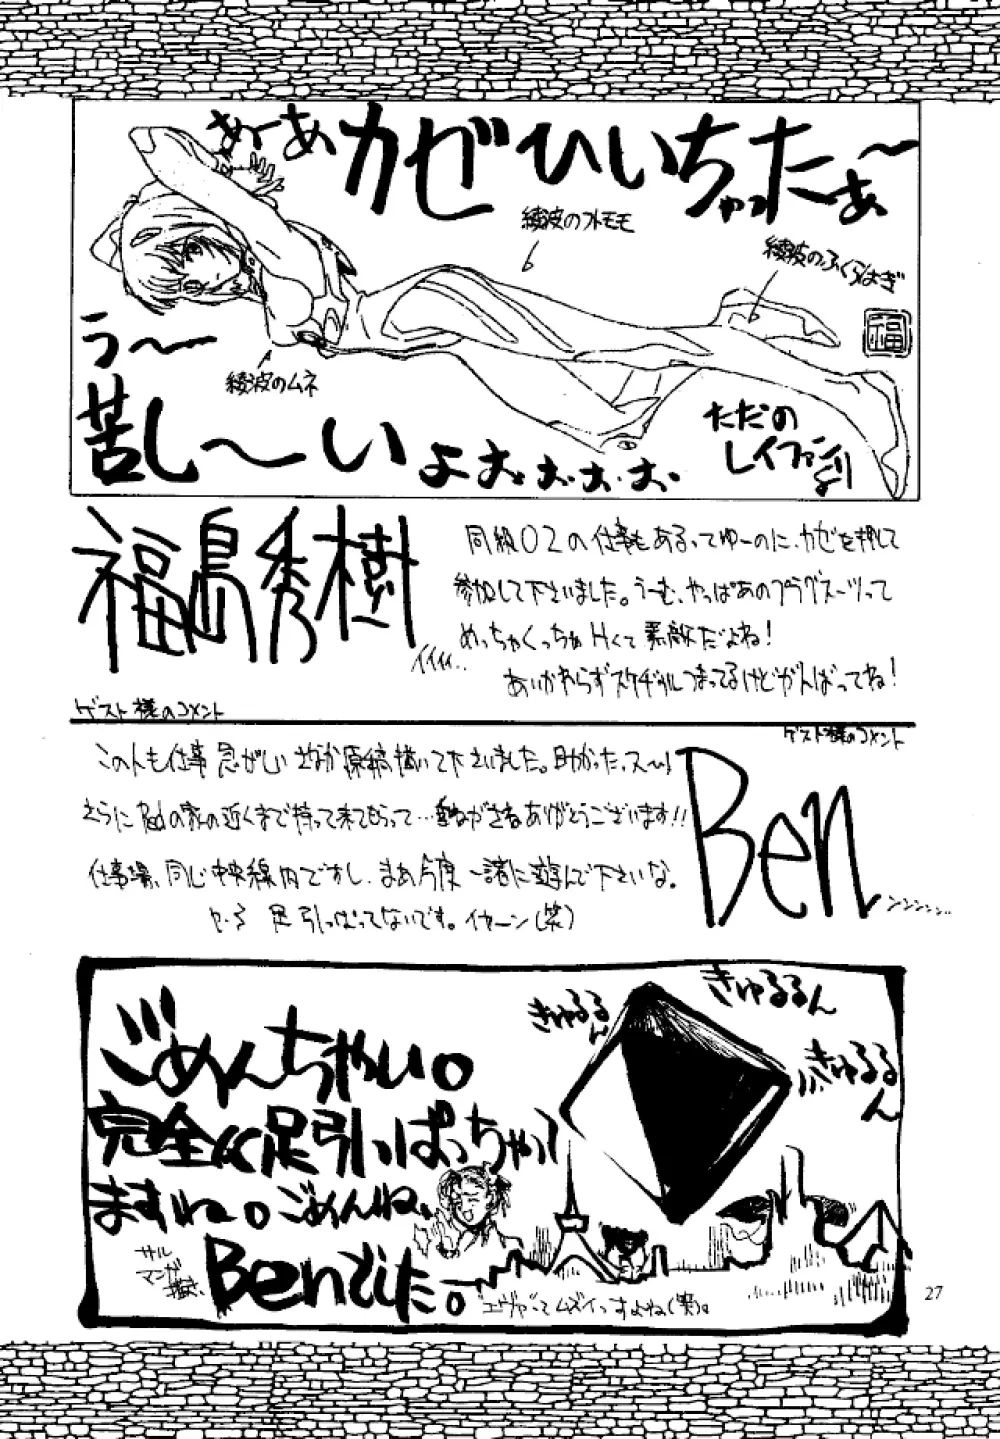 あーあカゼひいちゃったぁ〜
綾波のフトモモ
綾波のふくらはぎ
福
う〜
綾波のムネ
苦し〜いよぉぉぉぉぉ
ただの
レイファンより
福島秀樹
イイイィ…
同級02の仕事もあるってゆーのに、カゼを押して
参加して下さいました。うーむ、やっぱあのプラグスーツって
めっちゃくっちゃHくて素敵だよね!
あいかわらずスケヂュルつまってるけどがんばってね!
ゲスト様のコメント
ゲスト様のコメント
この人も仕事急がしいさなか原稿描いて下さいました。助かったっス〜!
さらにRedの家の近くまで持って来てもらって…重ねがさねありがとうございます!!
仕事場、同じ中央線内ですし、まあ今度一諸に遊んで下さいな。
P.S 足引っぱってないです。イヤーン(笑)
Ben
ンンンンン…
きゅるるん
きゅるるん
きゅるるん
ごめんちゃい。
完全に足引っぱっちゃい
ますね。ごめんね、
サル
マンガ
描き、
Benでした。
"エヴァ"ってムズイっすよね(笑)。
27